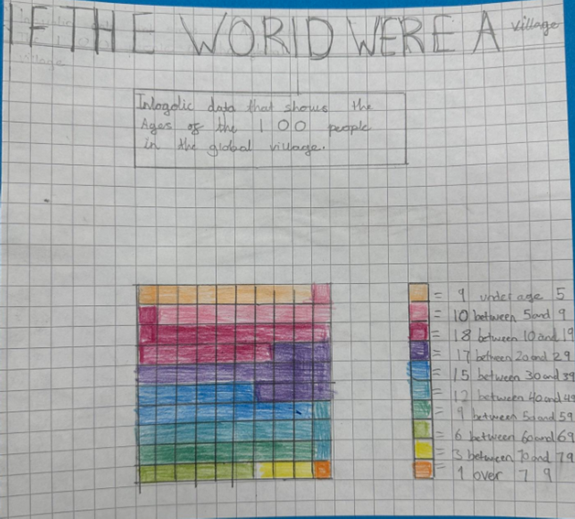 IF THE WORLD WERE A village
Infogolic data that shows the
Ages of the 100 people
in the global village.
= 9 under age 5
= 10 between 5 and 9
= 18 between 10 and 19
= 17 between 20 and 29
= 15 between 30 and 39
= 12 between 40 and 49
= 9 between 50 and 59
= 6 between 60 and 69
= 3 between 70 and 79
= 1 over 79